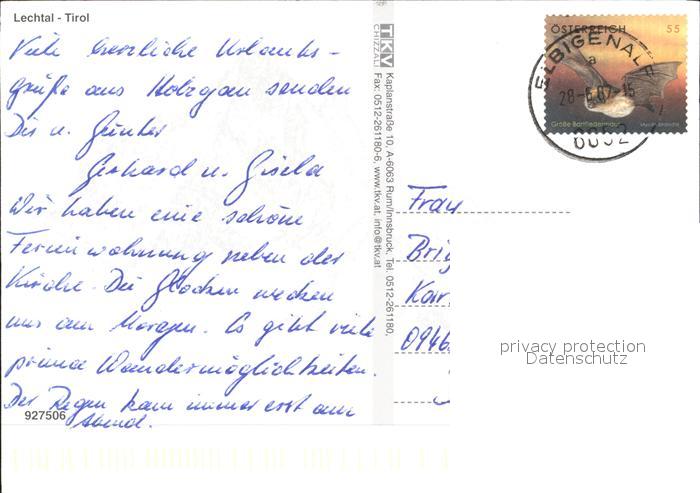 Lechtal - Tirol
Viele herzliche Urlaubs-
grüße aus Holzgau senden
Dir u. Günter
Gerhard u. Gisela
Wir haben eine schöne
Ferienwohnung neben der
Kirche. Die Glocken wecken
uns am Morgen. Es gibt viele
prima Wandermöglichkeiten.
Der Regen kam immer erst am
Abend.
927506
TKV
CHIZZALI
Kaplanstraße 10, A-6063 Rum/Innsbruck, Tel. 0512-261180,
Fax: 0512-261180-6, www.tkv.at, info@tkv.at
ÖSTERREICH 55
ELBIGENALP
a
28-6.07-15
6652
Große Bartfledermaus
Frau
Brig
Kar
0946
privacy protection
Datenschutz